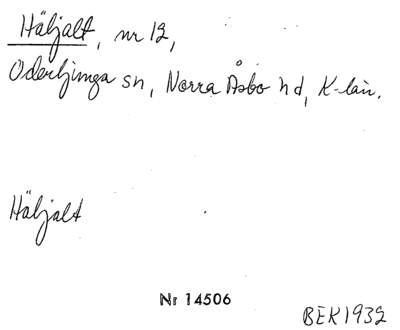 Häljalt, nr 12,
Oderljunga sn, Norra Åsbo hd, K-län.
Häljalt
Nr 14506
BEK1932